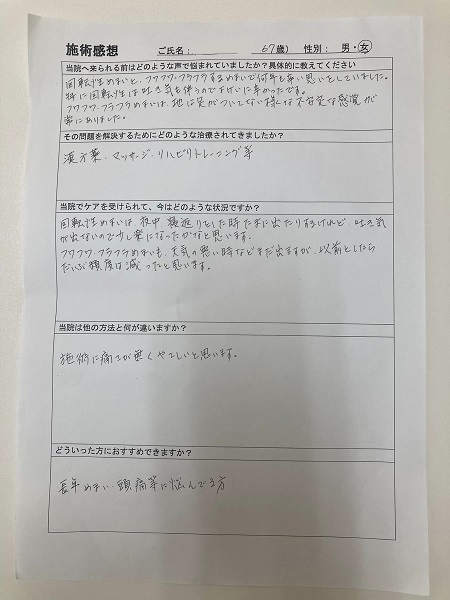 施術感想 ご氏名： 67歳） 性別： 男・女
当院へ来られる前はどのような声で悩まれていましたか？具体的に教えてください
回転性めまいと、フワフワ・フラフラするめまいで何年も辛い思いをしていました。
特に回転性は吐き気も伴うのですげいに辛かったです。
フワフワ・フラフラめまいは、地に足がついてない様な不安定な感覚が
常にありました。
その問題を解決するためにどのような治療されてきましたか？
漢方薬・マッサージ・リハビリトレーニング等
当院でケアを受けられて、今はどのような状況ですか？
回転性めまいは、夜中 寝返りをした時たまに出たりするけれど、吐き気
が出ないので少し楽になったかなと思います。
フワフワ・フラフラめまいも、天気の悪い時などまだ出ますが、以前としたら
だいぶ頻度は減ったと思います。
当院は他の方法と何が違いますか？
施術に痛さが無くやさしいと思います。
どういった方におすすめできますか？
長年めまい・頭痛等に悩んでる方